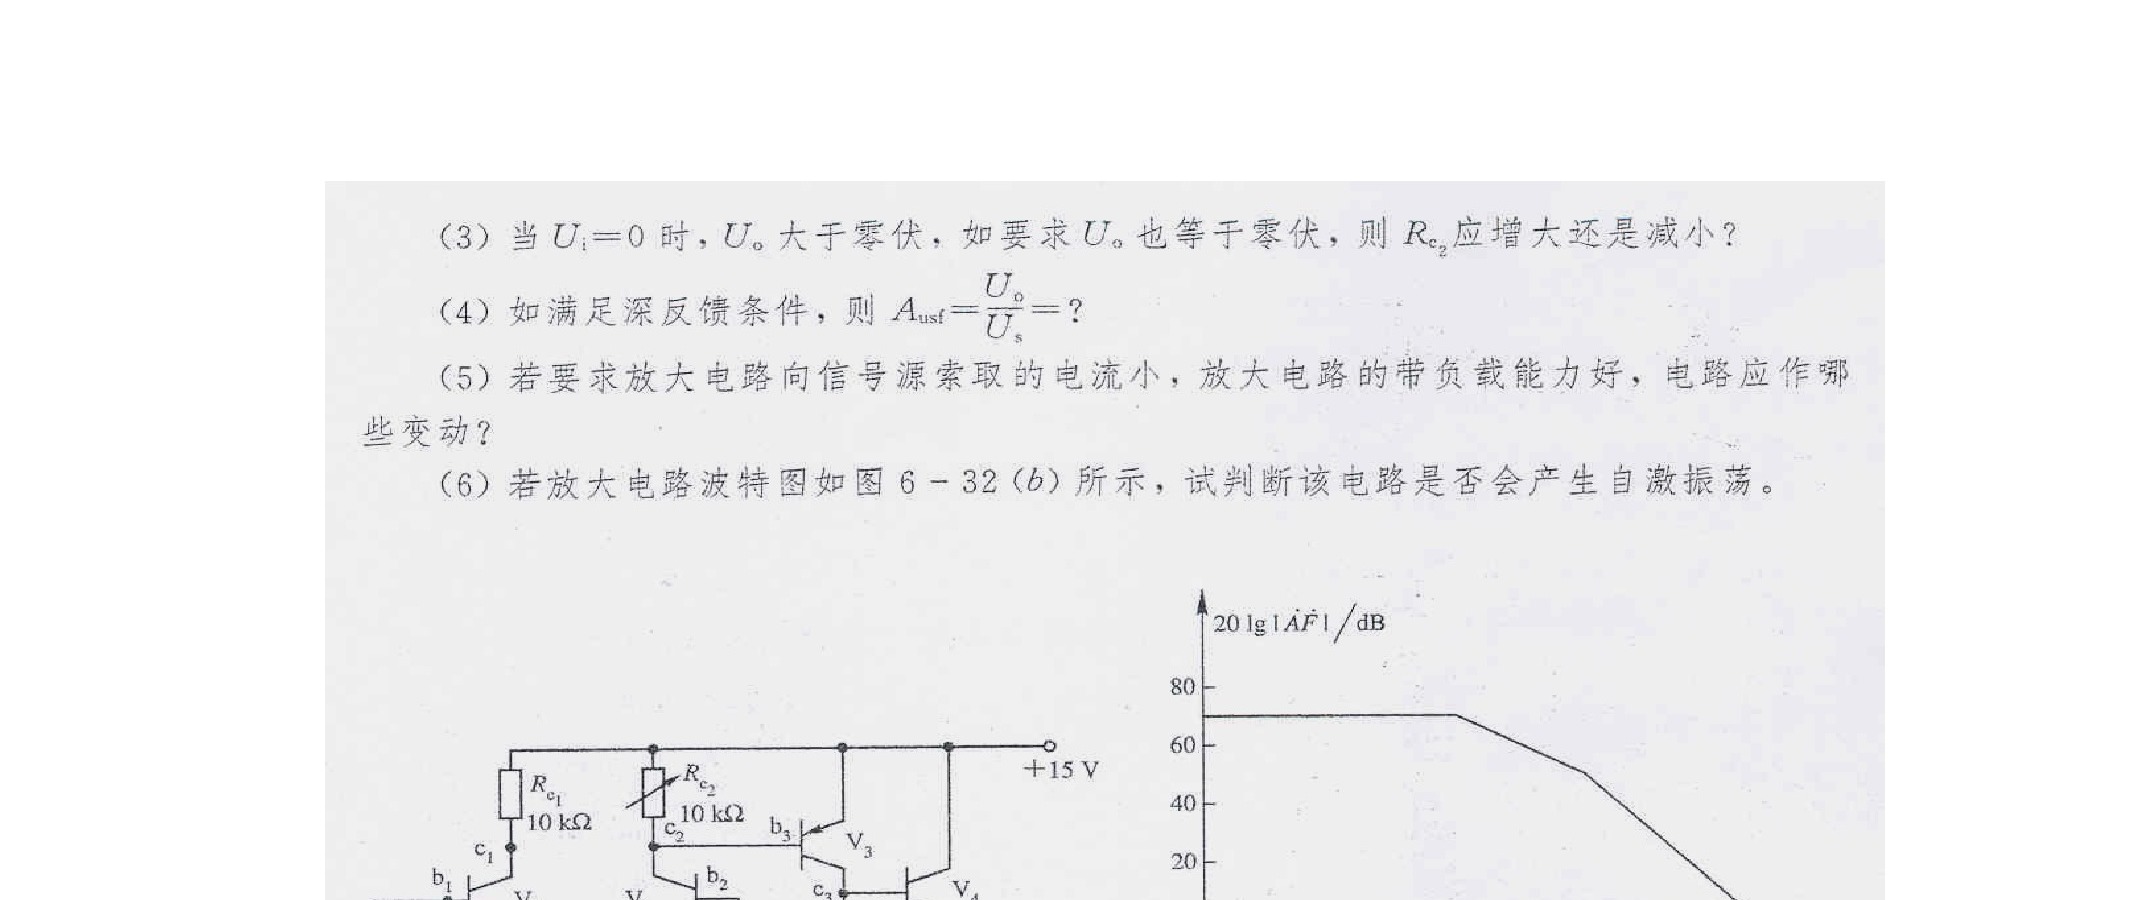 (3) 当 Uᵢ=0 时，Uₒ 大于零伏，如要求 Uₒ 也等于零伏，则 R_c₂ 应增大还是减小？
(4) 如满足深反馈条件，则 A_usf = Uₒ/Uₛ = ？
(5) 若要求放大电路向信号源索取的电流小，放大电路的带负载能力好，电路应作哪
些变动？
(6) 若放大电路波特图如图 6-32(b) 所示，试判断该电路是否会产生自激振荡。
20 lg|ȦḞ|/dB
80
60
40
20
+15 V
R_c₁
10 kΩ
R_c₂
10 kΩ
c₁
c₂
b₃
V₃
b₁
b₂
c₃